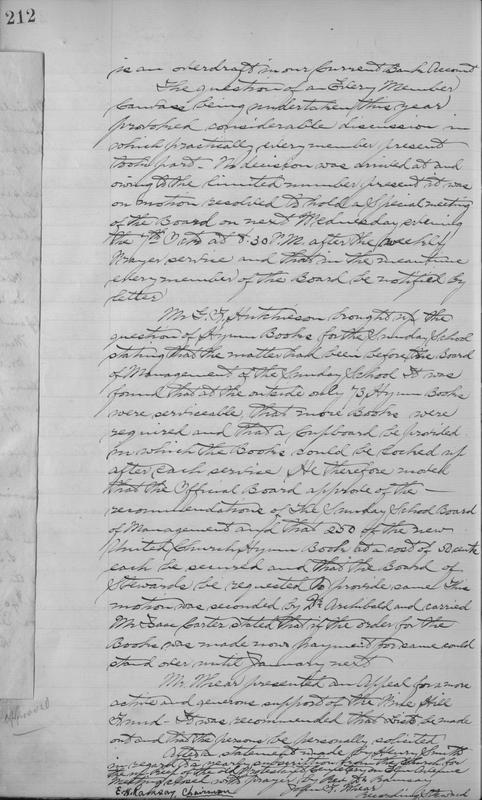 212
is an overdraft in our Current Bank Account
The question of an Every Member
Canvass being undertaken this year
provoked considerable discussion in
which practically every member present
took part - No decision was arrived at and
owing to the limited number present it was
on motion resolved to hold a special meeting
of the Board on next Wednesday evening
the 7th Oct at 8.30 P.M. after the weekly
Prayer service and that in the meantime
every member of the Board be notified by
letter
Mr Hutchison brought up the
question of Hymn Books for the Sunday School
stating that the matter had been before the Board
of Management of the Sunday School It was
found that at the outside only 73 Hymn Books
were serviceable, that more Books were
required and that a Cupboard be provided
in which the Books could be locked up
after each service He therefore moved
that the Official Board approve of the
recommendations of the Sunday School Board
of Management and that 250 of the new
United Church Hymn Book at a cost of 50 cents
each be secured and that the Board of
Stewards be requested to provide same This
motion was seconded by Dr Archibald and carried
Mr Isaac Carter stated that if the order for the
Books was made now payment for same could
stand over until January next
Mr Mhear presented an Appeal for more
active and generous support of the Hill
Fund - It was recommended that Lists be made
out and that the persons be personally solicited
After a statement made by Henry Smith
in regard to a yearly subscription from the Church for
the of the old Protestant Cemetery on
Meeting closed with prayer by Rev
E. H. Ramsay, Chairman
John F. Mhear
Recording Steward
Approved